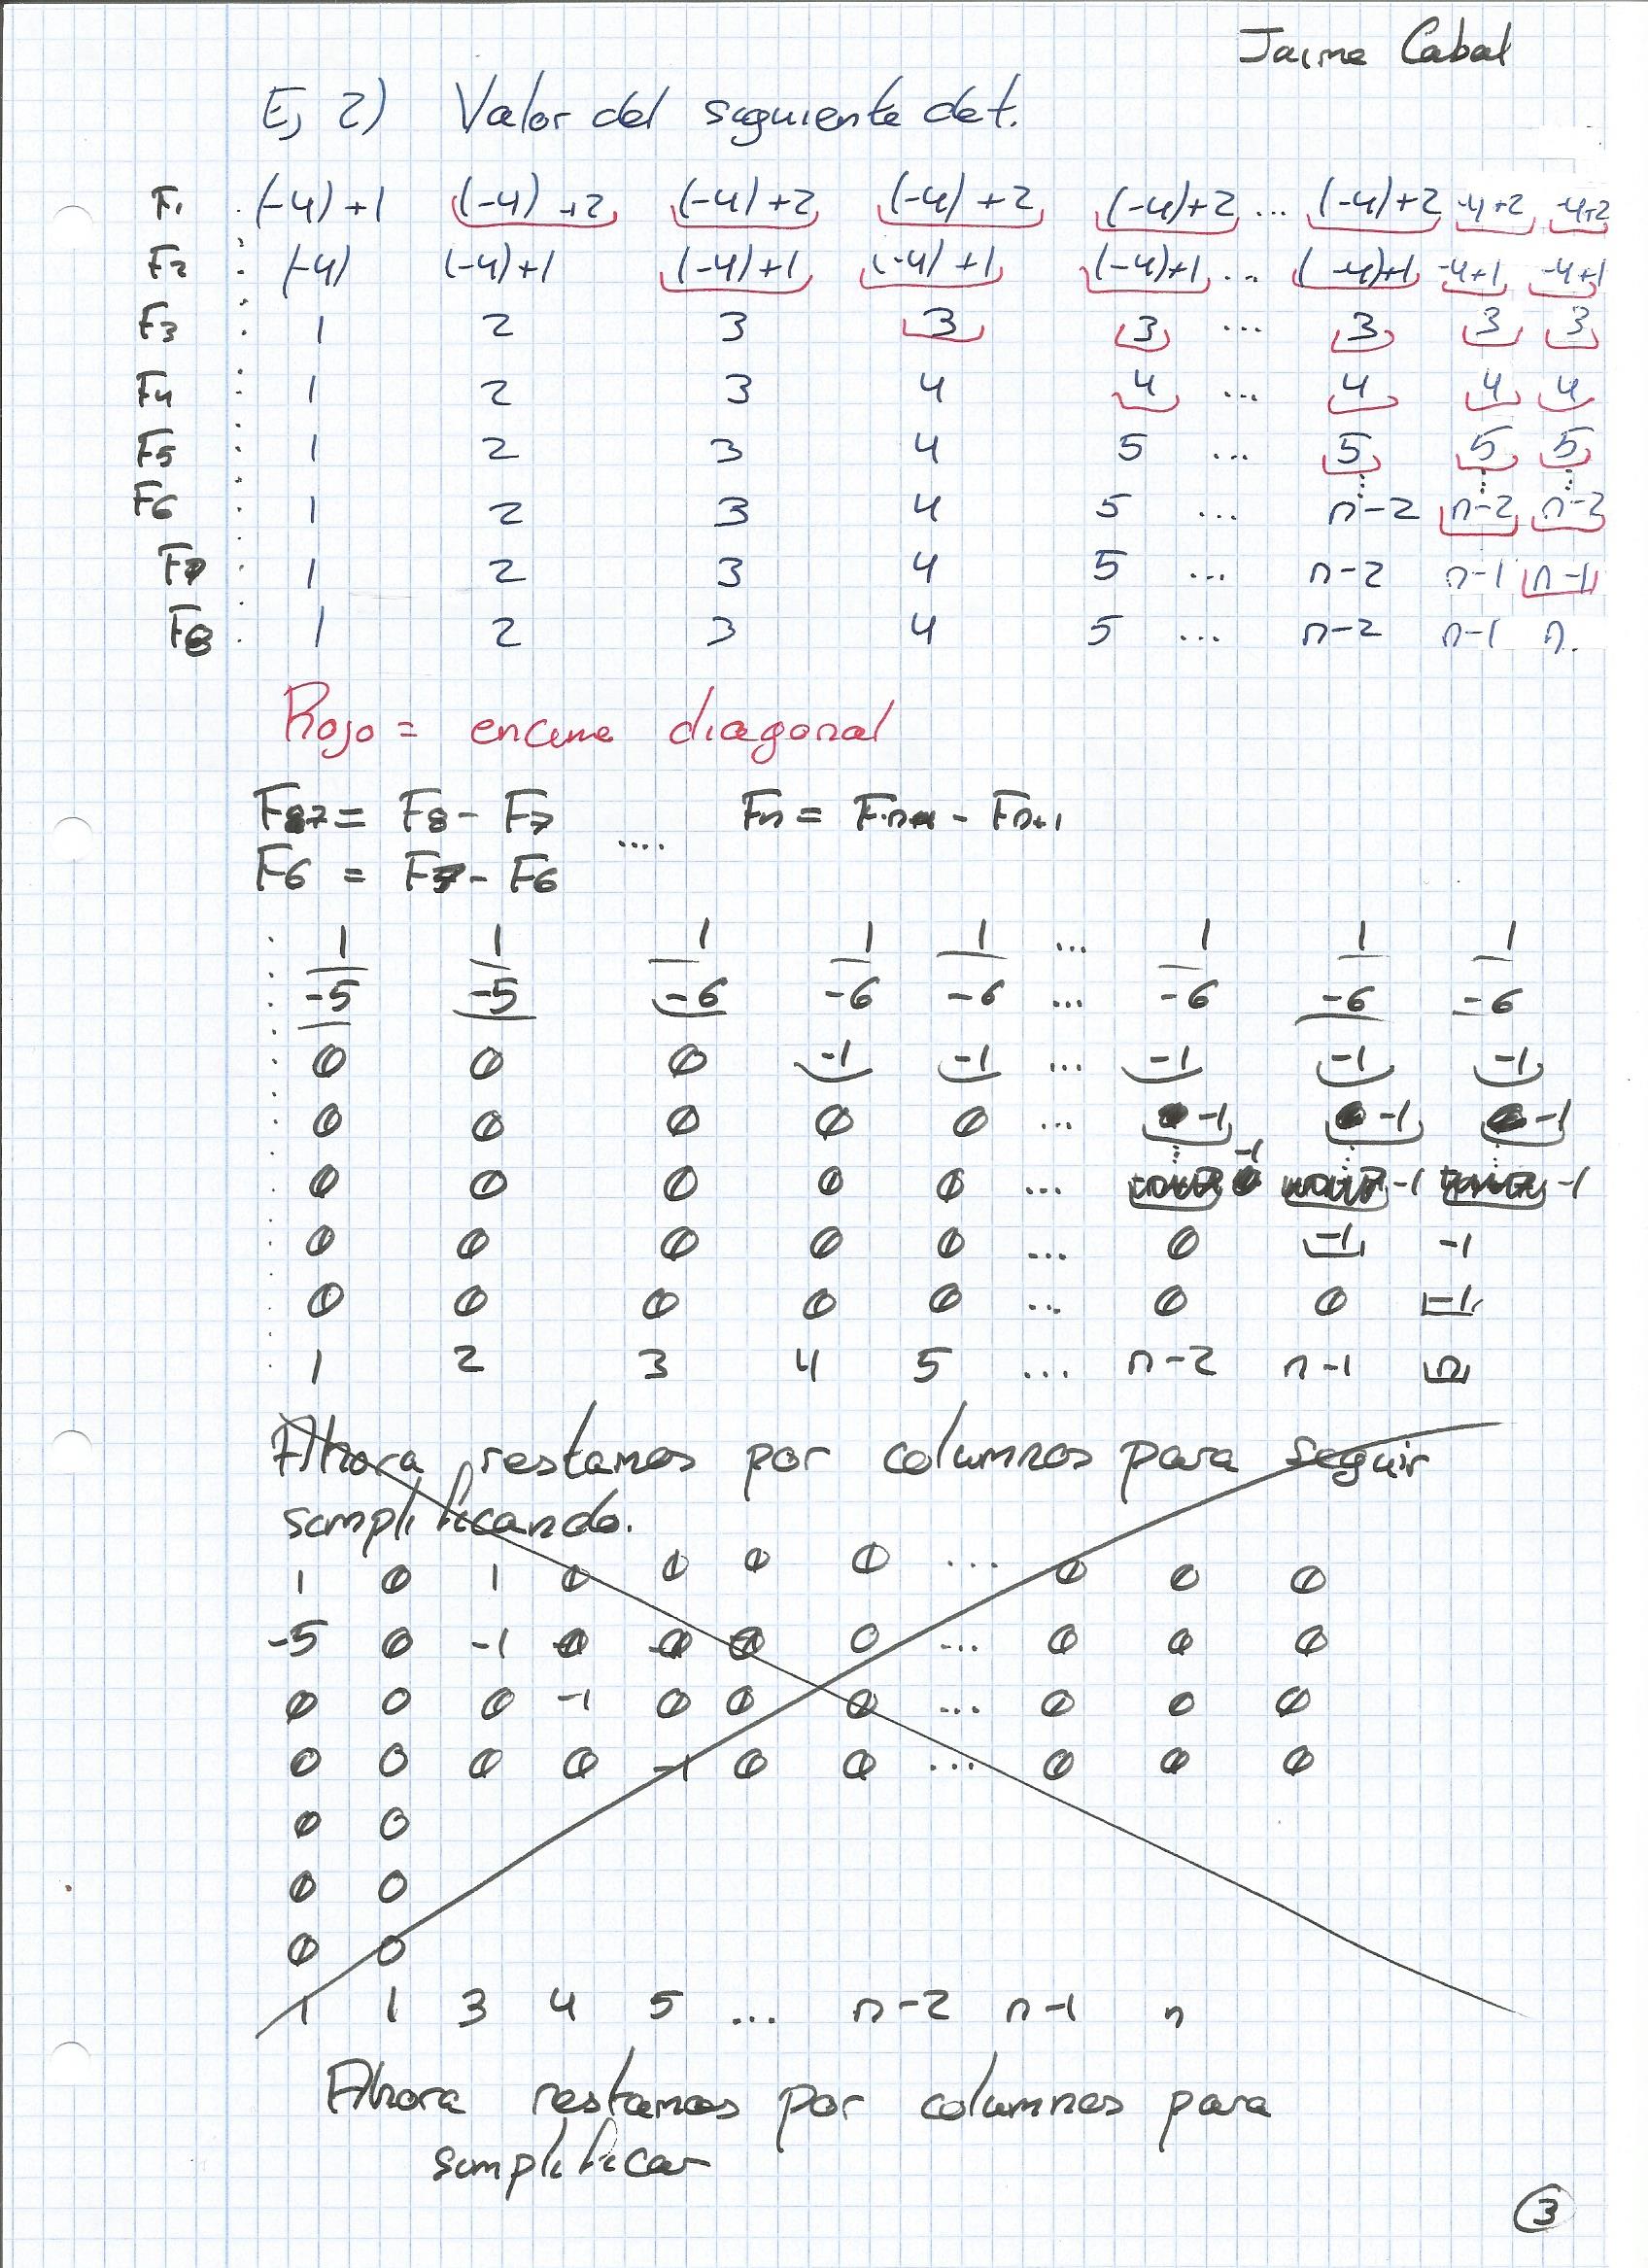 Jaime Cabal
Ej 2) Valor del siguiente det.
F1 : (-4)+1 (-4)+2 (-4)+2 (-4)+2 (-4)+2 ... (-4)+2 -4+2 -4+2
F2 : (-4) (-4)+1 (-4)+1 (-4)+1 (-4)+1 ... (-4)+1 -4+1 -4+1
F3 : 1 2 3 3 3 ... 3 3 3
F4 : 1 2 3 4 4 ... 4 4 4
F5 : 1 2 3 4 5 ... 5 5 5
F6 : 1 2 3 4 5 ... n-2 n-2 n-2
F7 : 1 2 3 4 5 ... n-2 n-1 n-1
F8 : 1 2 3 4 5 ... n-2 n-1 n.
Rojo = encima diagonal
F7 = F8 - F7 .... Fn = - Fn+1
F6 = F7 - F6
1 1 1 1 1 ... 1 1 1
-5 -5 -6 -6 -6 ... -6 -6 -6
0 0 0 -1 -1 ... -1 -1 -1
0 0 0 0 0 ... -1 -1 -1
0 0 0 0 0 ... -1 -1 -1
0 0 0 0 0 ... 0 -1 -1
0 0 0 0 0 ... 0 0 -1
1 2 3 4 5 ... n-2 n-1 n
Ahora restamos por columnas para seguir
simplificando.
1 0 1 0 0 0 0 ... 0 0 0
-5 0 -1 0 0 0 0 ... 0 0 0
0 0 0 -1 0 0 0 ... 0 0 0
0 0 0 0 -1 0 0 ... 0 0 0
0 0
0 0
0 0
1 1 3 4 5 ... n-2 n-1 n
Ahora restamos por columnas para
simplificar
3